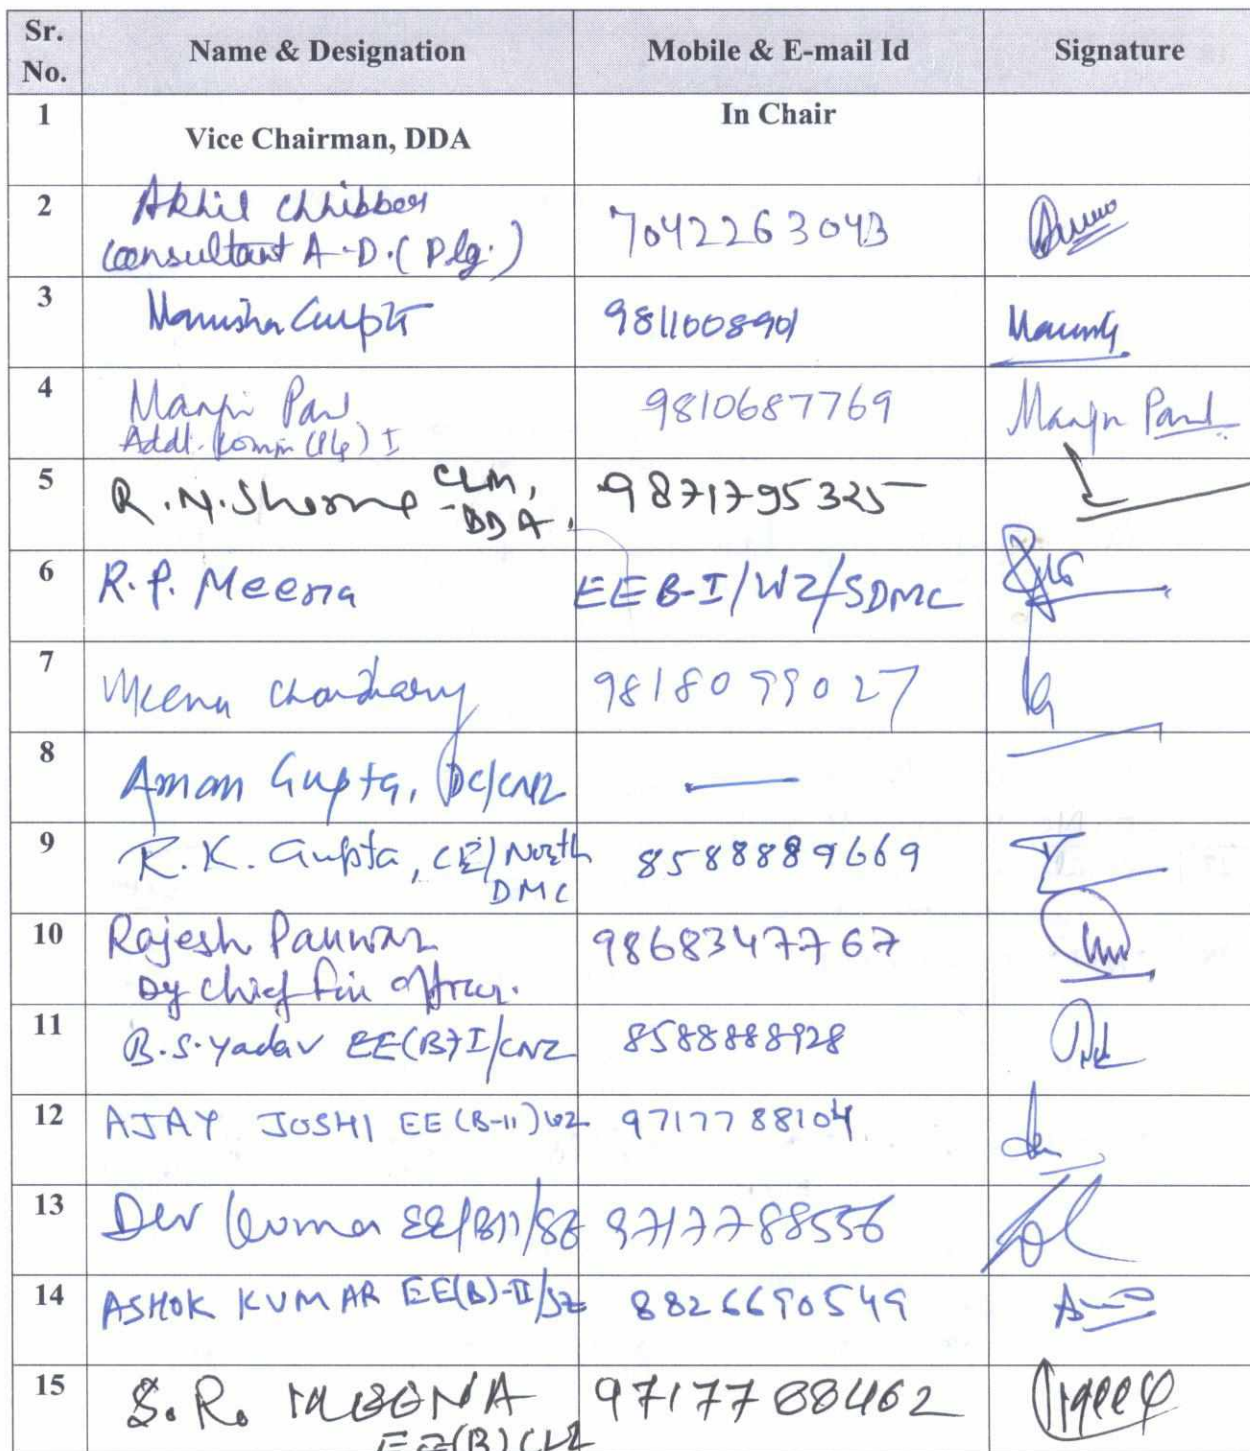 Sr. No.
Name & Designation
Mobile & E-mail Id
Signature
1
Vice Chairman, DDA
In Chair
2
Akhil Chhibber
Consultant A.D.(Plg.)
7042263043
3
Manisha Gupta
9811008901
4
Manju Paul
Addl. Comm (Plg) I
9810687769
Manju Paul
5
R.N. Sharma CLM,
DDA.
9871795325
6
R.P. Meena
EE B-I/WZ/SDMC
7
Meenu Choudhary
9818099027
8
Aman Gupta, DC/CNZ
—
9
R.K. Gupta, CE/North
DMC
8588889669
10
Rajesh Panwar
Dy Chief Fin Officer.
9868347767
11
B.S. Yadav EE(B)I/CNZ
8588888928
12
AJAY JOSHI EE(B-II)WZ
9717788104
13
Dev Kumar EE(B)II/SZ
9717788556
14
ASHOK KUMAR EE(B)-II/SZ
8826690549
15
S.R. MEENA
EE(B)CLZ
9717788462